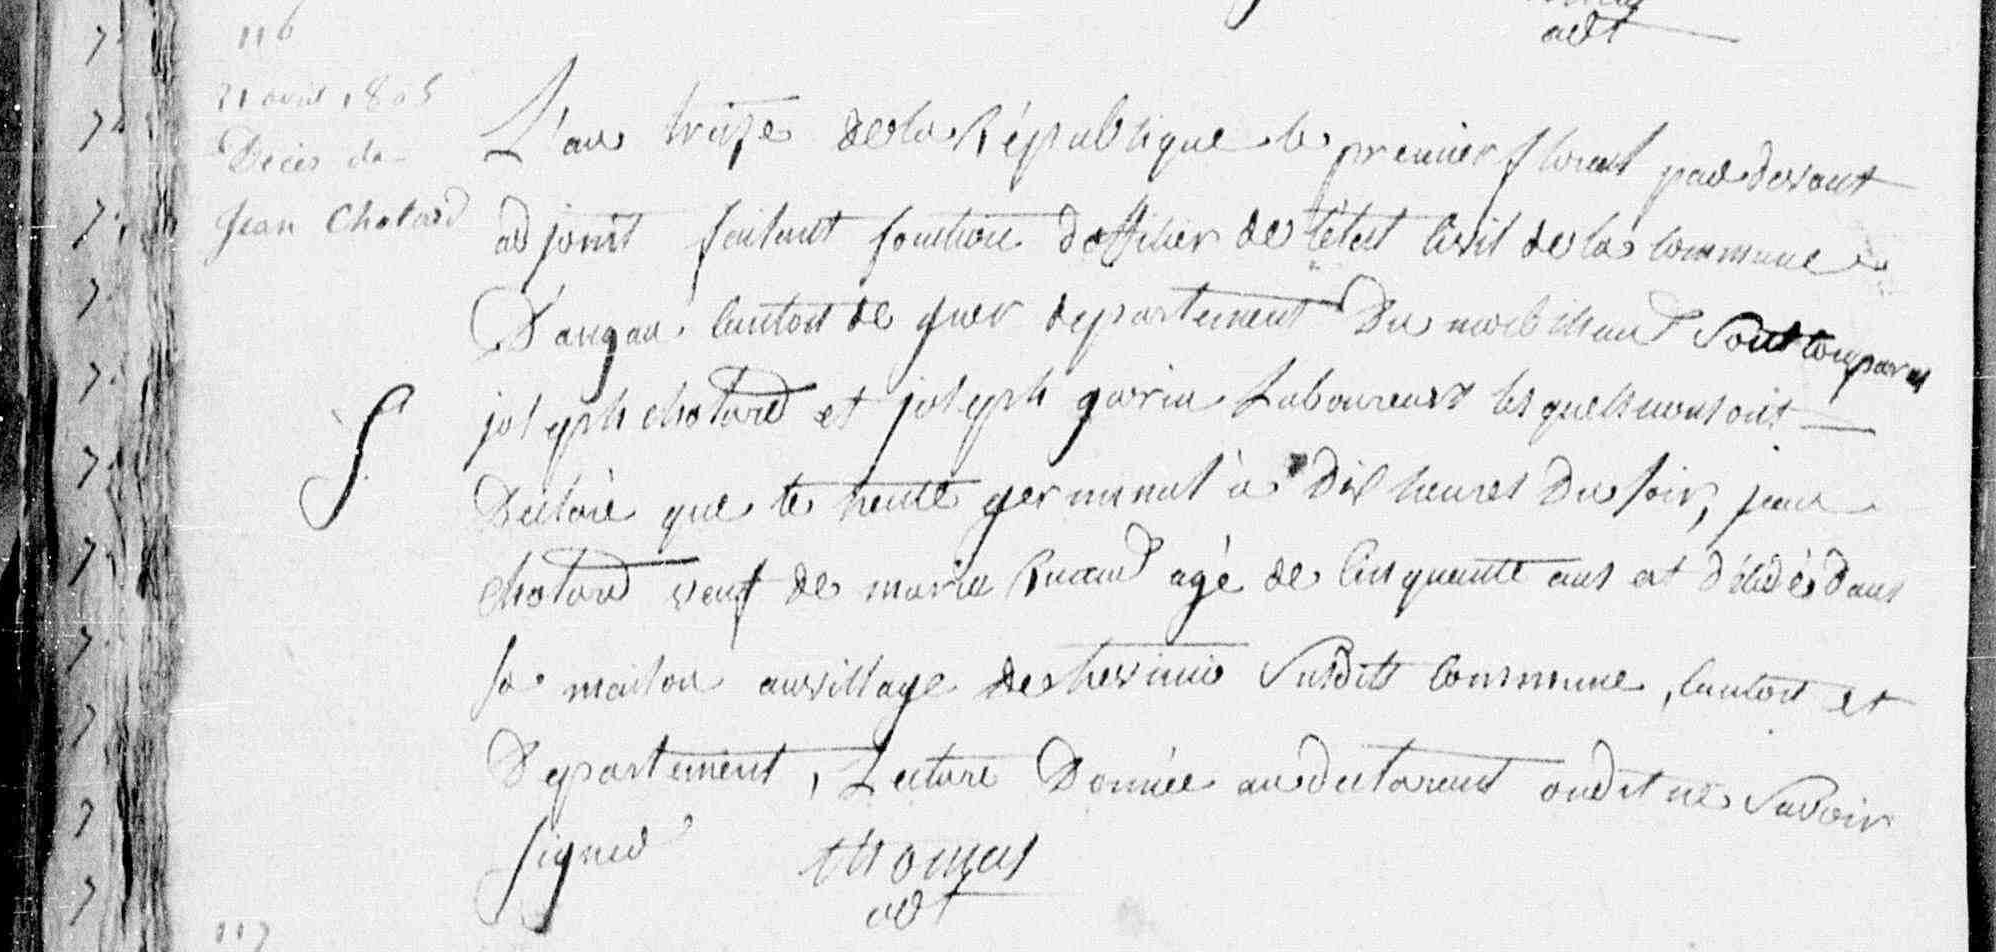 adt
116
21 avril 1805
Décès de
Jean Chotard
L'an treize de la République le premier floreal par devant
adjoint faisant fonction d'officier de l'état civil de la commune
D'augan canton de guer departement Du morbihan Sont comparus
joseph chotard et joseph guerin Laboureurs lesquels nous ont
Déclaré que le trente germinal à Dix heures Du soir, jean
chotard veuf de marie Ruaud agé de cinquante ans est décédé Dans
sa maison au village de Susdits commune, canton et
Departement, Lecture Donnée aux declarant ondit ne Savoir
signer thomas
adt
117